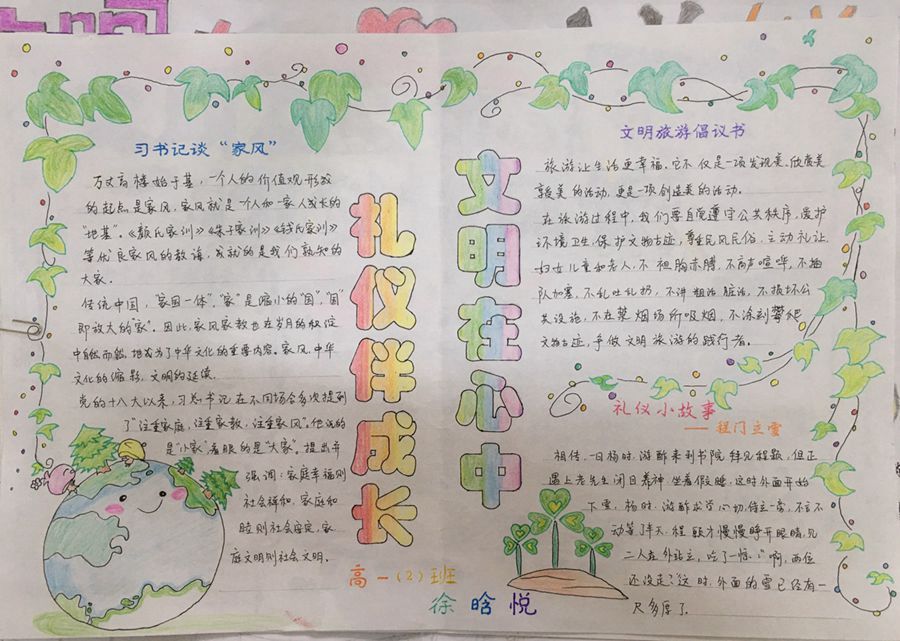 习书记谈“家风”
万丈高楼始于基，一个人的价值观形成
的起点是家风，家风就是一个人和一家人成长的
“地基”。《颜氏家训》《朱子家训》《钱氏家训》
等优良家风的教诲，成就的是我们熟知的
大家。
传统中国，“家国一体”，“家”是缩小的“国”，“国”
即放大的“家”。因此，家风家教也在岁月的积淀
中自然而然地成为了中华文化的重要内容。家风，中华
文化的缩影，文明的延续
党的十八大以来，习总书记在不同场合多次提到
了“注重家庭，注重家教，注重家风”。他说的
是“小家”，着眼的是“大家”，提出并
强调：家庭幸福则
社会祥和，家庭和
睦则社会安定，家
庭文明则社会文明。
礼仪伴成长
高一（2）班
文明在心中
徐晗悦
文明旅游倡议书
旅游让生活更幸福。它不仅是一项发现美、欣赏美
享受美的活动，更是一项创造美的活动。
在旅游过程中，我们要自觉遵守公共秩序，爱护
环境卫生，保护文物古迹，尊重民风民俗，主动礼让
妇女儿童和老人，不袒胸赤膊，不高声喧哗，不插
队加塞，不乱吐乱扔，不讲粗话脏话，不损坏公
共设施，不在禁烟场所吸烟，不涂刻攀爬
文物古迹，争做文明旅游的践行者。
礼仪小故事
——程门立雪
相传，一日杨时、游酢来到书院拜见程颐，但正
遇上老先生闭目养神，坐着假睡，这时外面开始
下雪，杨时、游酢求学心切，侍立一旁，不言不
动等了半天，程颐才慢慢睁开眼睛，见
二人在外站立，吃了一惊：“啊，两位
还没走？”这时，外面的雪已经有一
尺多厚了。